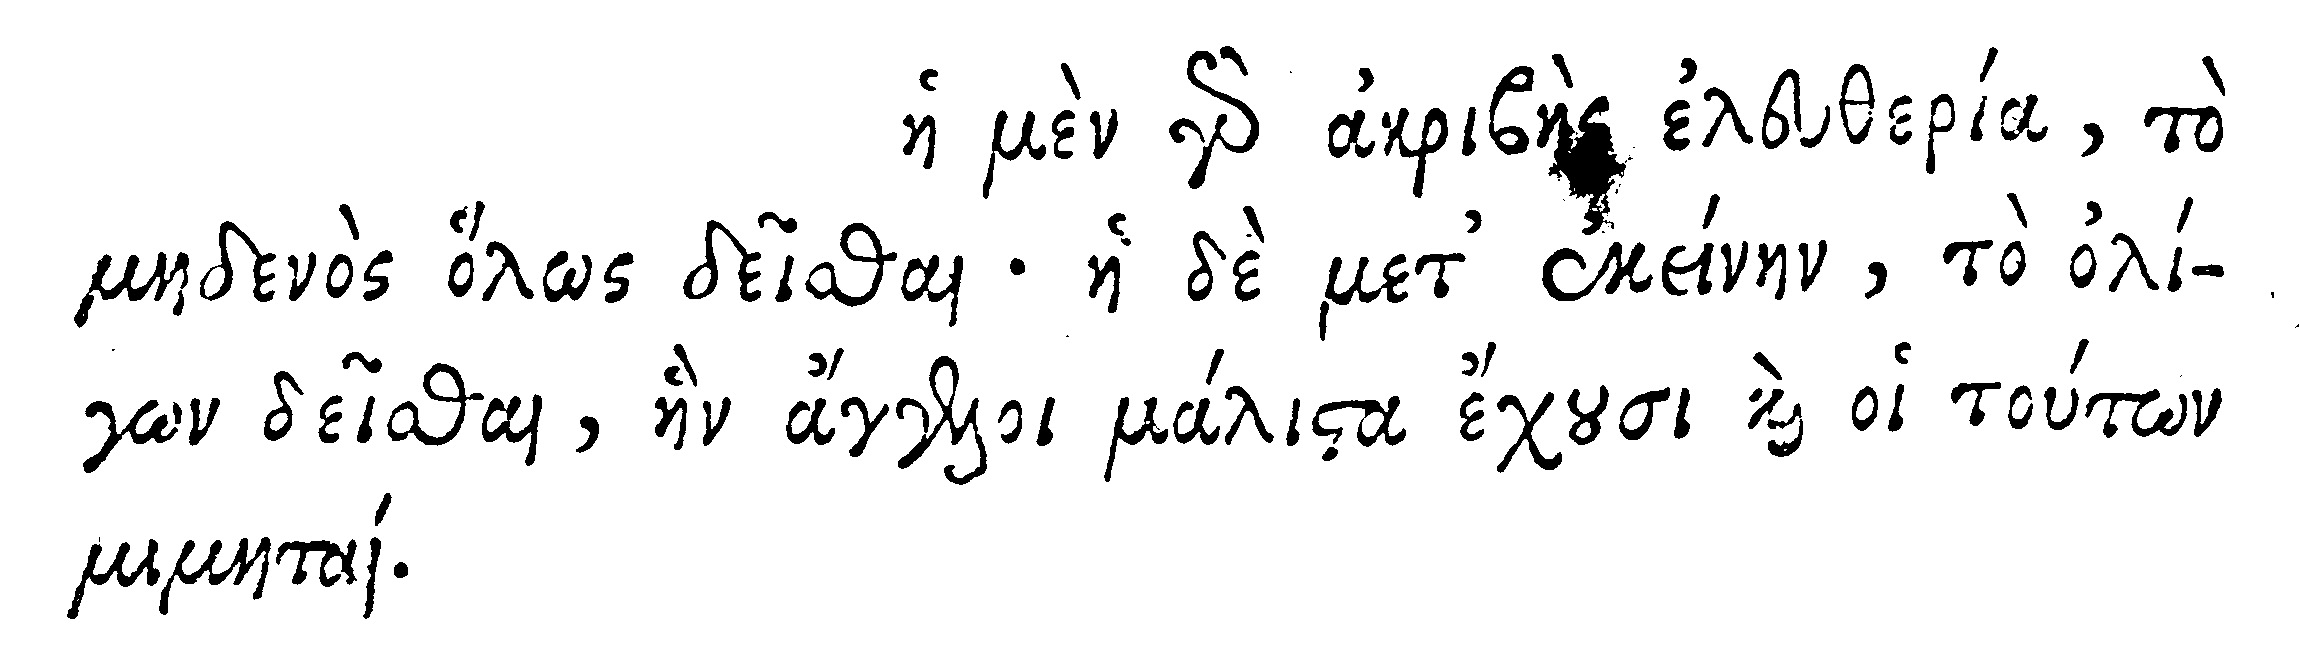 ἡ μὲν γὰρ ἀκριβὴς ἐλευθερία, τὸ
μηδενὸς ὅλως δεῖσθαι· ἡ δὲ μετ’ ἐκείνην, τὸ ὀλί-
γων δεῖσθαι, ἣν ἄγγελοι μάλιϛα ἔχουσι καὶ οἱ τούτων
μιμηταί.